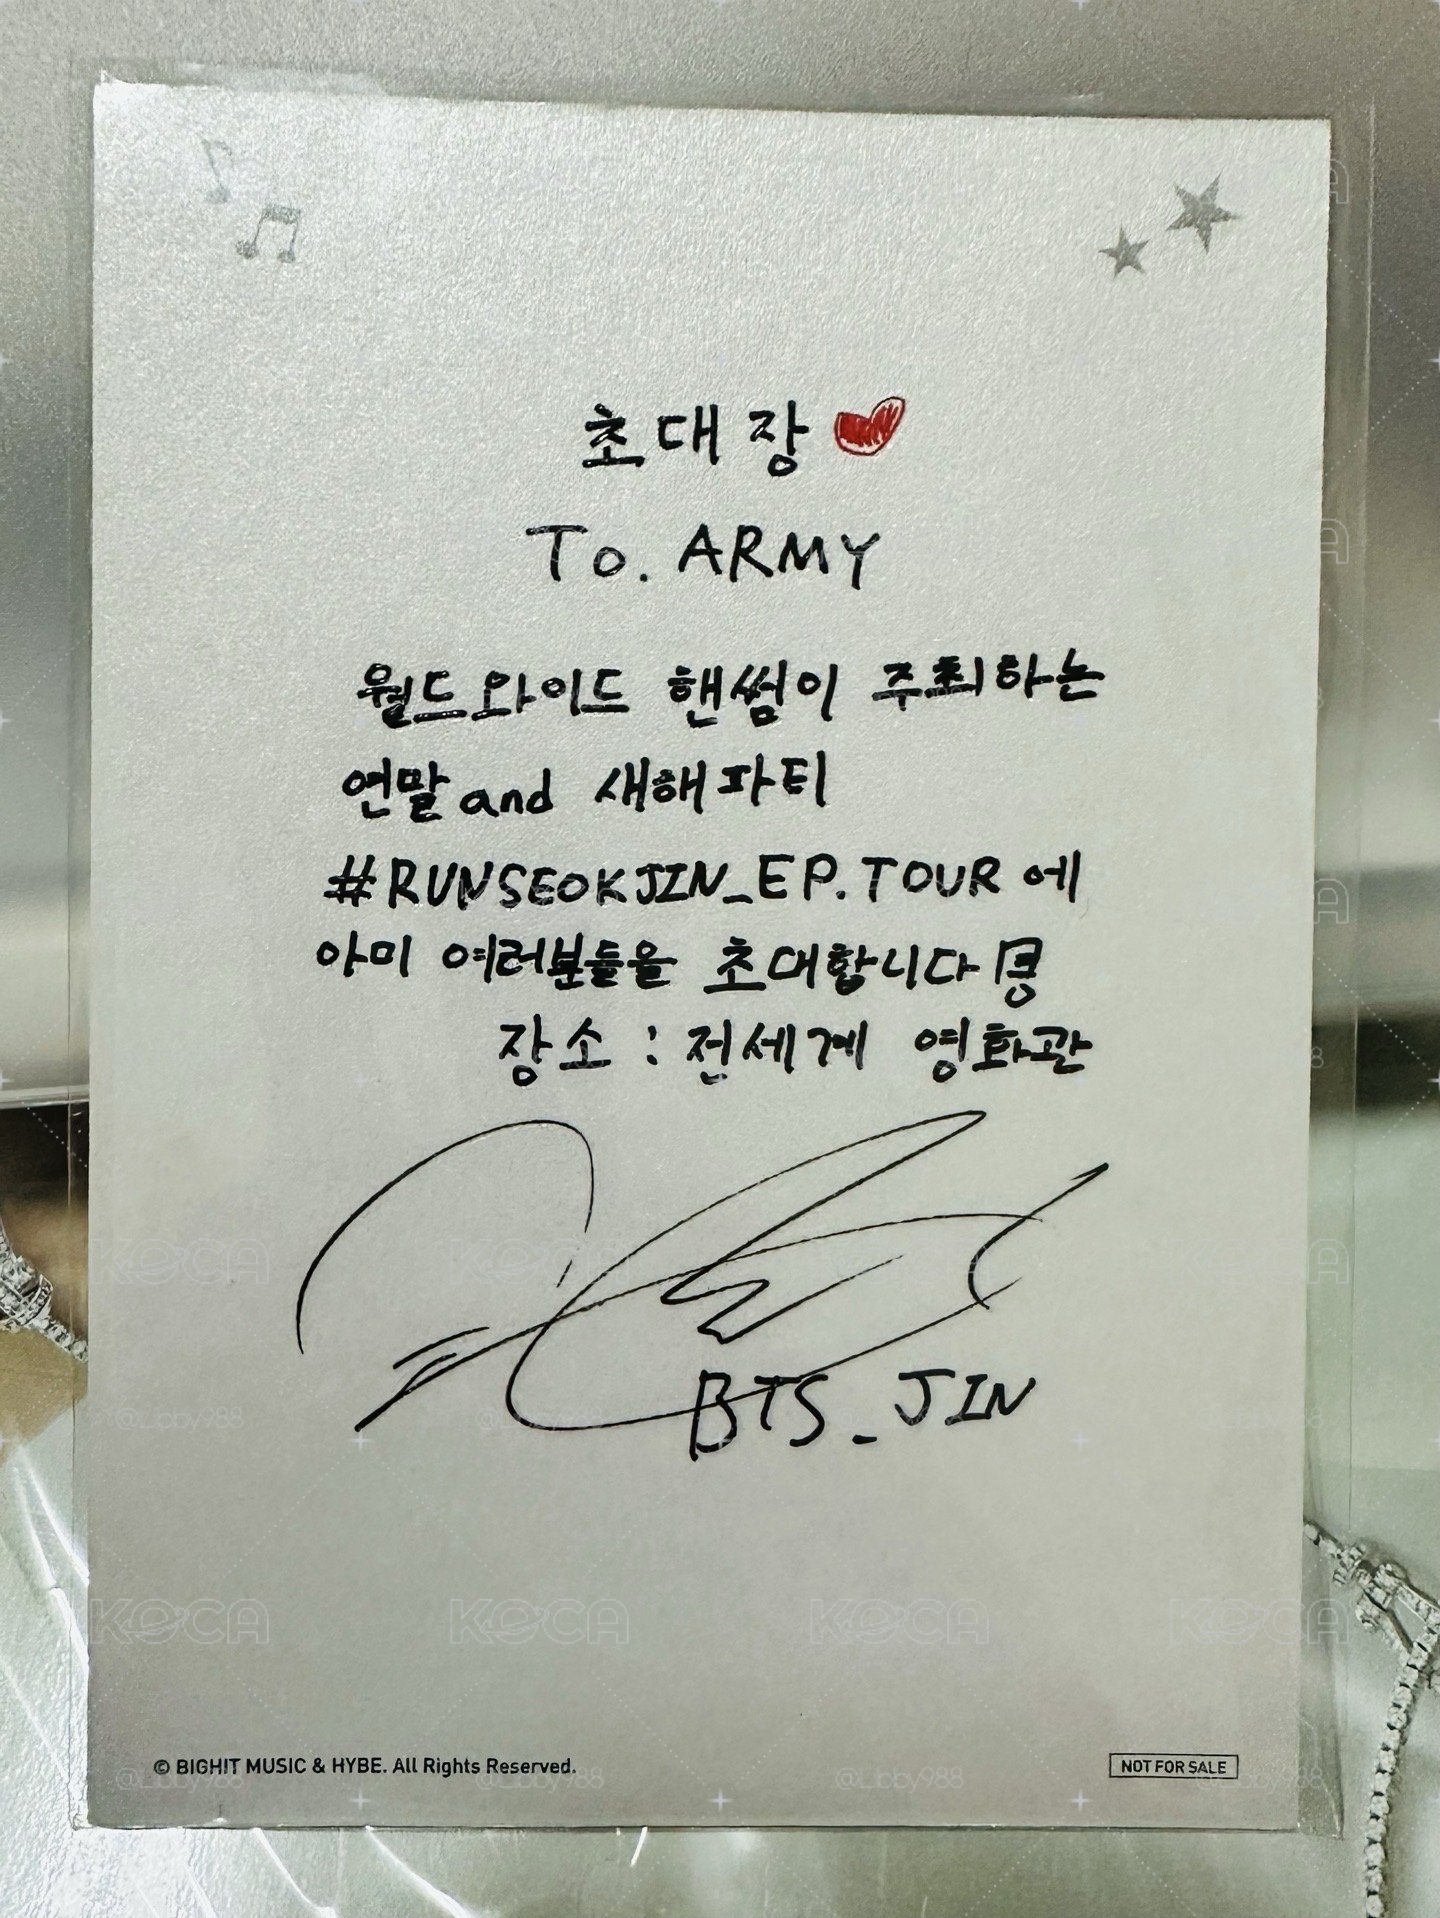 초대장
To. ARMY
월드와이드 핸썸이 주최하는
연말 and 새해파티
#RUNSEOKJIN_EP.TOUR에
아미 여러분들을 초대합니다
장소 : 전세계 영화관
BTS_JIN
© BIGHIT MUSIC & HYBE. All Rights Reserved.
NOT FOR SALE
KOCA
@Libby988